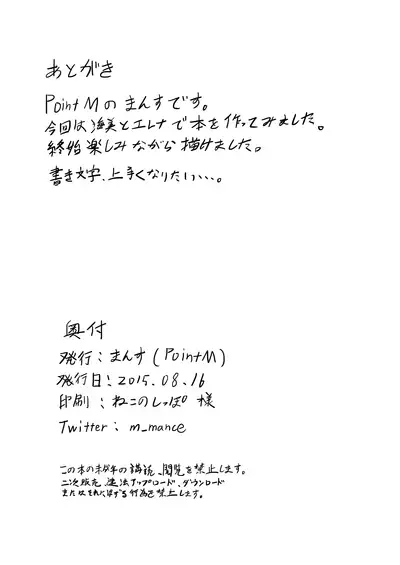 あとがき
Point M の まんすです。
今回は海美とエレナで本を作ってみました。
終始楽しみながら描けました。
書き文字、上手くなりたい…。
奥付
発行：まんす(PointM)
発行日：2015.08.16
印刷：ねこのしっぽ 様
Twitter：m_mance
この本の未成年の購読、閲覧を禁止します。
二次販売、違法アップロード、ダウンロード
または 行為を禁止します。